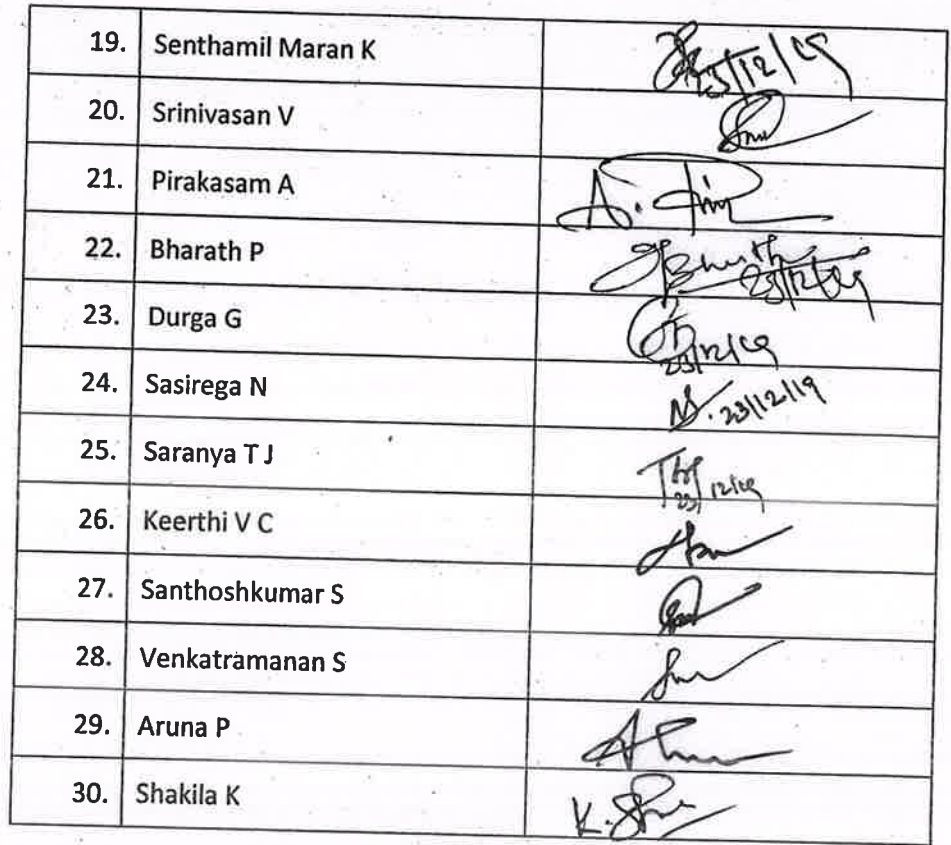 19. Senthamil Maran K 23/12/19
20. Srinivasan V
21. Pirakasam A
22. Bharath P 23/12/19
23. Durga G 23/12/19
24. Sasirega N 23/12/19
25. Saranya T J 23/12/19
26. Keerthi V C
27. Santhoshkumar S
28. Venkatramanan S
29. Aruna P
30. Shakila K